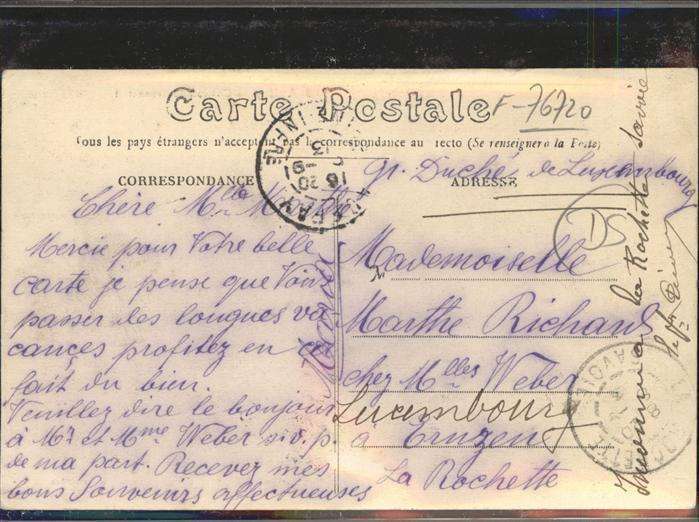 Carte Postale
F-76720
Tous les pays étrangers n'acceptent pas la correspondance au recto (Se renseigner à la Poste)
CORRESPONDANCE
ADRESSE
Gr. Duché de Luxembourg
Chère Mlle
Mercie pour Votre belle
carte je pense que Voir
passer les longues va
cances profitez en
fait du bien.
Veuillez dire le bonjour
à Mr et Mme Weber s.v.p.
de ma part. Recevez mes
bons Souvenirs affectueuses
Mademoiselle
Marthe Richard
chez Mlles Weber
Luxembourg
à Cruzen
La Rochette
DS
Inconnu à la Rochette Savoie